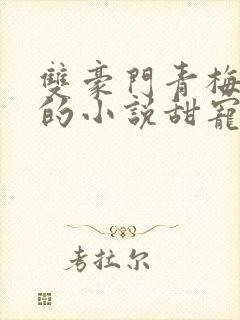 雙豪門青梅
的小說甜寵
考拉尔